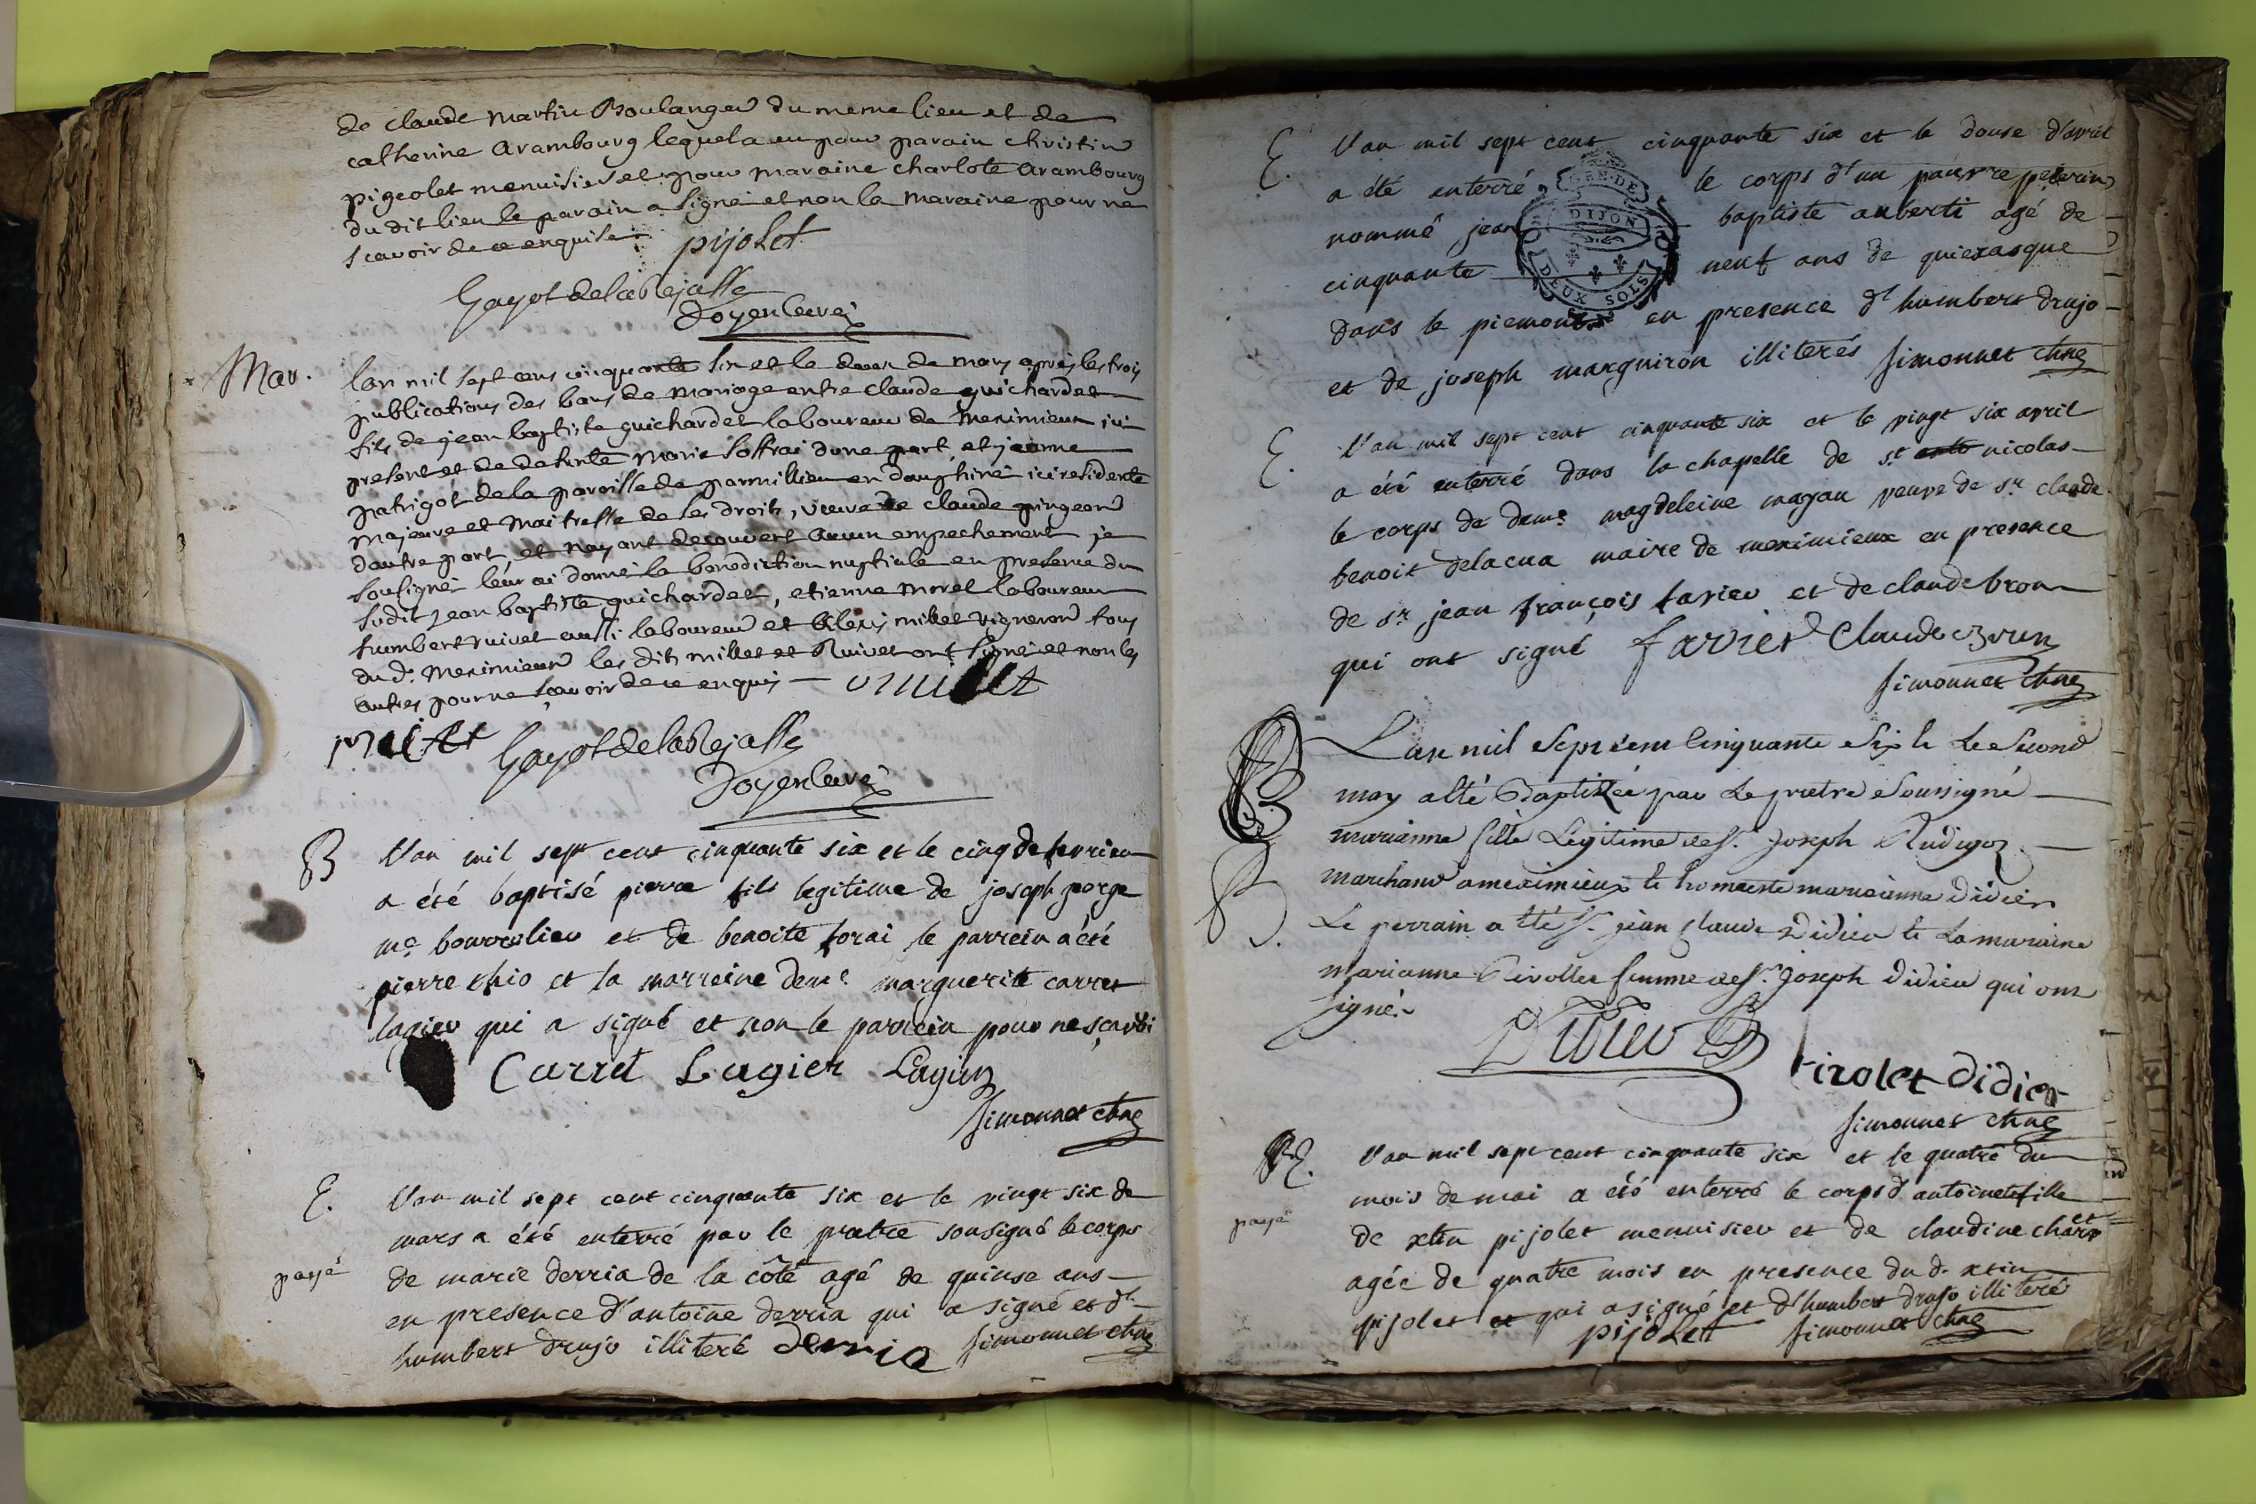 de claude Martin Boulanger du meme lieu et de
catherine Arambourg lequel a eu pour parain christin
pigeolet menuisier et pour maraine charlote arambourg
du dit lieu le parain a signé et non la maraine pour ne
scavoir de ce enquise
pijolet
Gayot de la Rejasse
Doyen curé
Mar.
lan mil sept cens cinquante six et le de mars apres les trois
publications des bans de mariage entre claude guichardet
fils de jean baptiste guichardet laboureur de meximieux ici
present et de defunte Marie soffrai dune part, et jeanne
patrigot de la paroisse de parmillieu en dauphiné ici residente
majeure et maitresse de ses droits, veuve de claude pingeon
dautre part, et nayant decouvert aucun empechement je
sousigné leur ai donné la benediction nuptiale en presence du
sudit jean baptiste guichardet, etienne morel laboureur
humbert ruivet aussi laboureur et alexis millet vigneron tous
du d. meximieux les dits millet et Ruivet ont signé et non les
autres pour ne sçavoir de ce enquis
Gayot de la Rejasse
Doyen curé
B
l'an mil sept cent cinquante six et le cinq de fevrier
a été baptisé pierre fils legitime de joseph george
me bourrelier et de benoite forai le parrein a été
pierre chio et la marreine deme marguerite carret
lagier qui a signé et non le parrein pour ne sçavoi
Carret Lagier Lagier
Simonnet chne
E.
l'an mil sept cent cinquante six et le vingt six de
mars a été enterré par le pretre sousigné le corps
payé
de marie derria de la côte agé de quinse ans
en presence d'antoine derria qui a signé et d'
humbert drujo illiteré derria Simonnet chne
E.
l'an mil sept cent cinquante six et le douse d'avril
a été enterré le corps d'un pauvre pelerin
nommé jean baptiste auberti agé de
cinquante neuf ans de quierasque
dans le piemont en presence d'humbert drujo
et de joseph marguiron illiterés Simonnet chne
GEN. DE
DIJON
DEUX SOLS
E.
l'an mil sept cent cinquante six et le vingt six avril
a été enterré dans la chapelle de st nicolas
le corps de deme magdeleine mayan veuve de sr claude
benoit delacua maire de meximieux en presence
de sr jean françois favier et de claude bron
qui ont signé favier Claude bron
Simonnet chne
B
L'an mil sept cent Cinquante Six le Second
may a été Baptizée par Le prêtre Soussigné
marianne fille Légitime de Sr. Joseph Rudigoz
marchand a meximieux et marianne Didier
Le perrain a été Sr. jean Claude Didier et La maraine
marianne Tirollet femme de Sr Joseph Didier qui ont
signé.
Didier
tirolet didier
Simonnet chne
E.
l'an mil sept cent cinquante six et le quatre du
mois de mai a été enterré le corps d'antoinete fille
payé
de xtin pijolet menuisier et de claudine charvet
agée de quatre mois en presence du d. xtin
pijolet qui a signé et d'humbert drujo illiteré
pijolet Simonnet chne